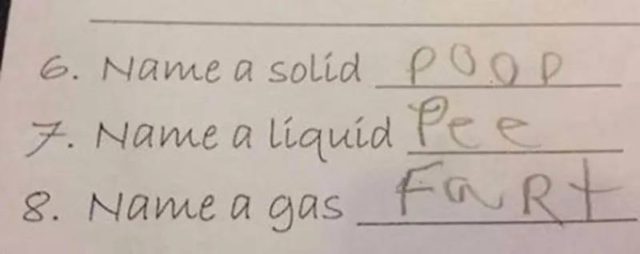 6. Name a solid poop
7. Name a liquid Pee
8. Name a gas FaRt